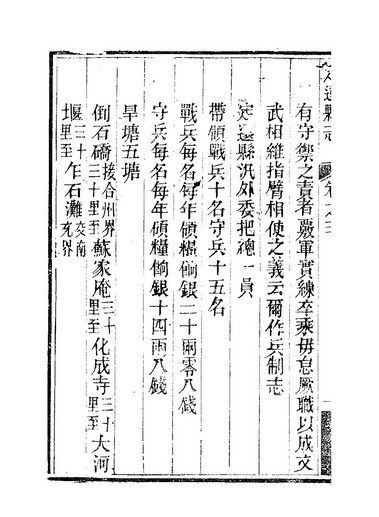 定遠縣志 卷之三
有守禦之責者覈軍實練卒乘毋怠厥職以成文
武相維指臂相使之義云爾作兵制志
定遠縣汛外委把總一員
帶領戰兵十名守兵十五名
戰兵每名每年領糧餉銀二十兩零八錢
守兵每名每年領糧餉銀十四兩八錢
旱塘五塘
倒石礄接合州界三十里至蘇家庵三十里至化成寺三十里至大河
堰三十里至乍石灘交南充界